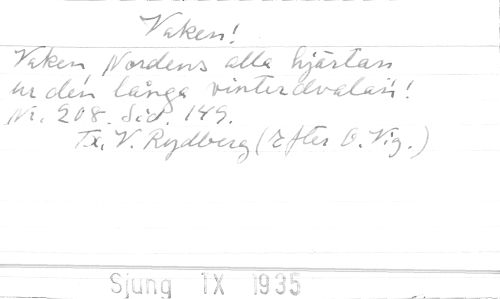 Vaken!
Vaken Nordens alla hjärtan
ur den långa vinterdvalan!
Nr. 208. Sid. 149.
Tx. V. Rydberg (Efter O. Vig.)
Sjung IX 1935